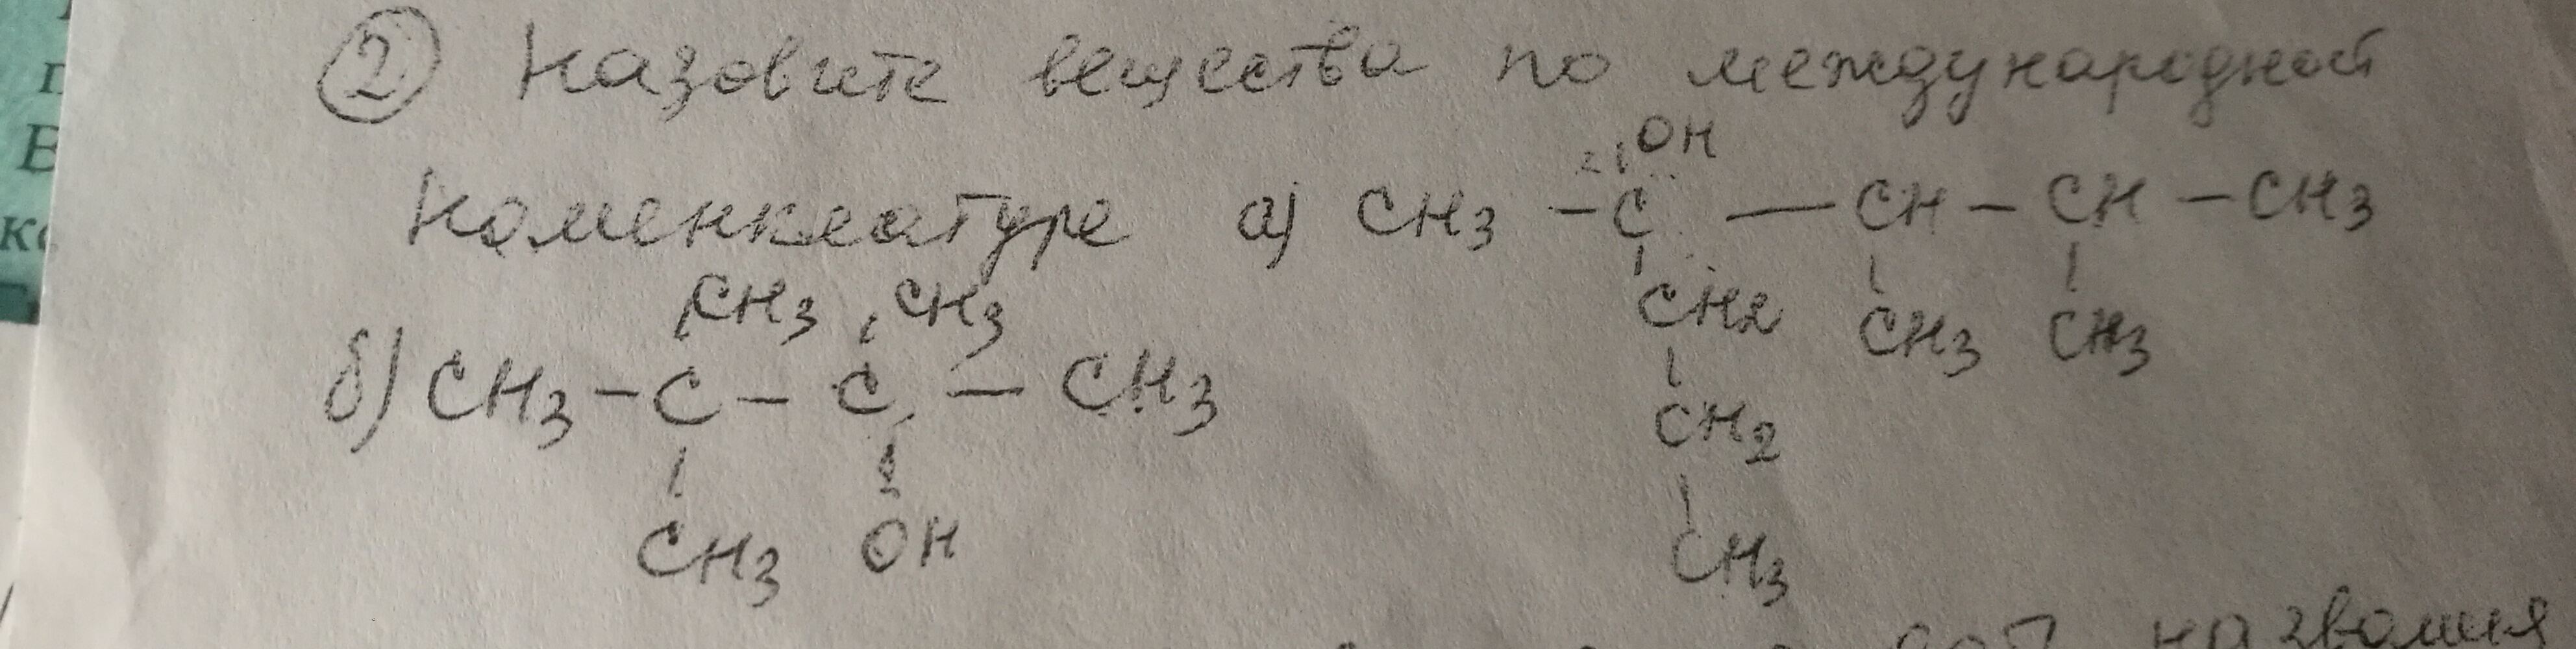 ② Назовите вещества по международной
номенклатуре а) CH3 - C — CH - CH - CH3
OH
CH2 CH3 CH3
CH2
CH3
CH3 CH3
б) CH3 - C - C - CH3
CH3 OH
названия